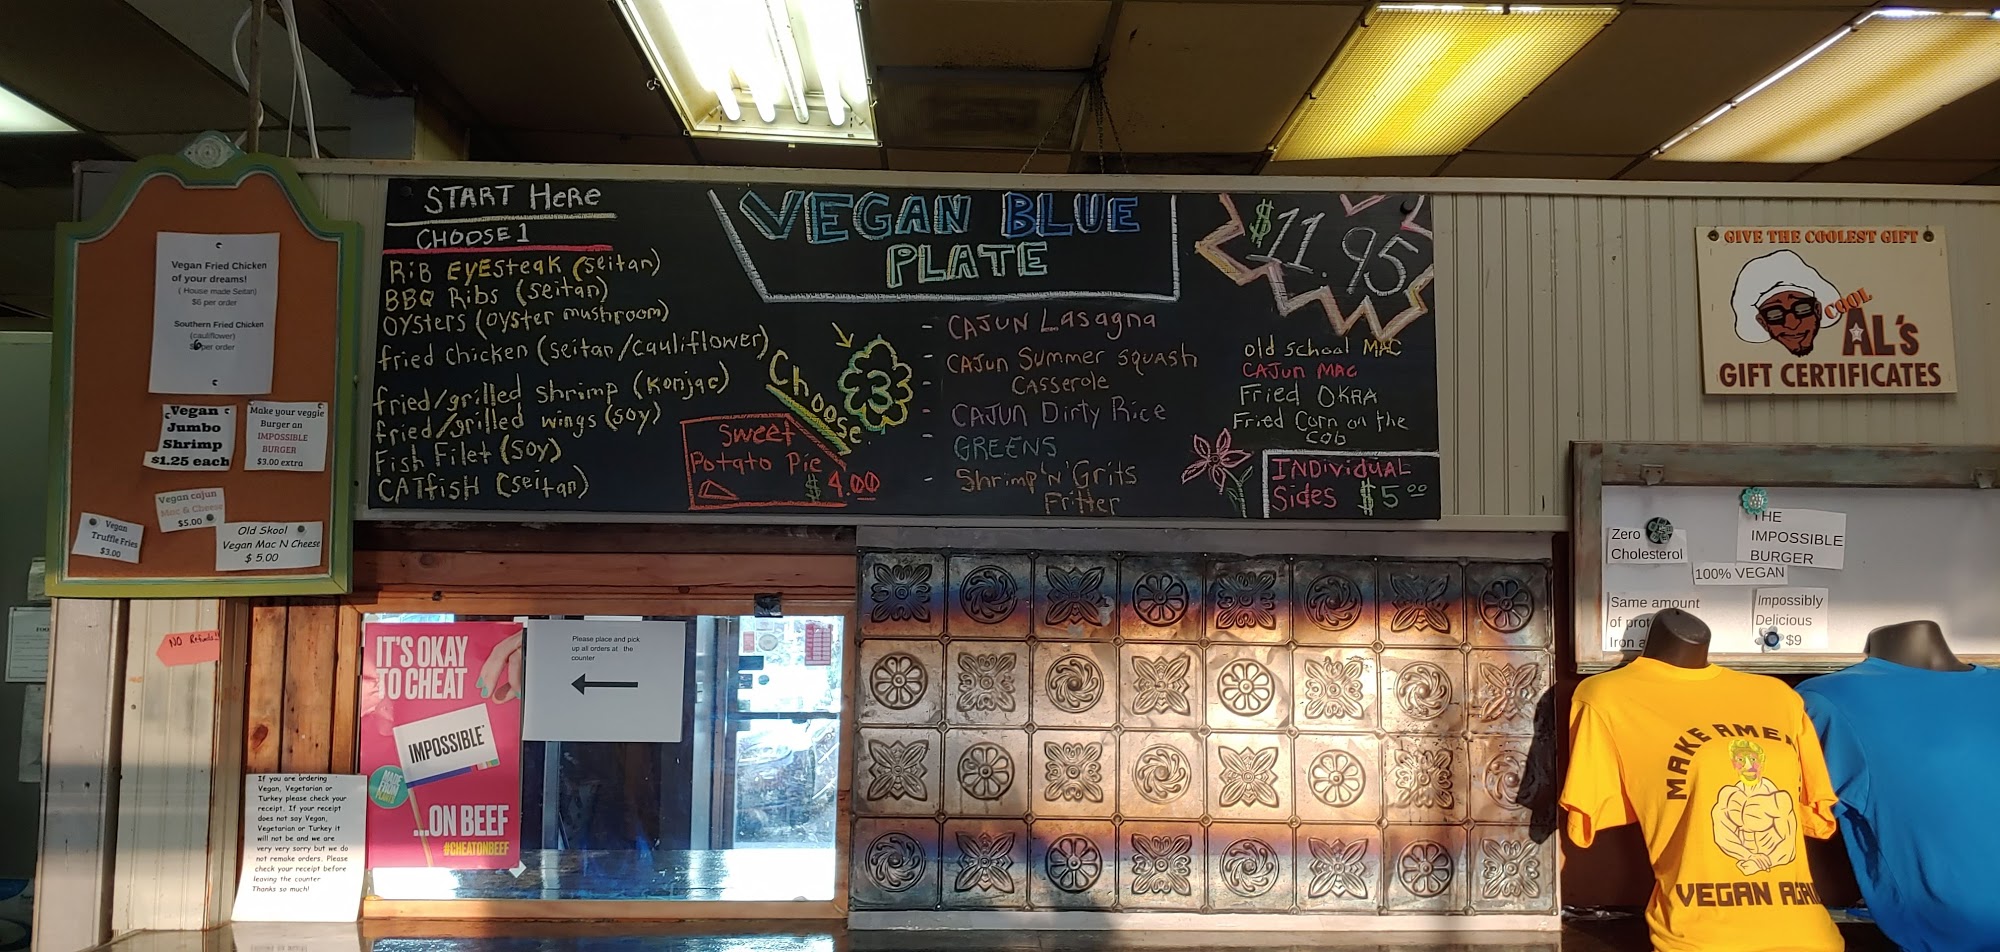 Vegan Fried Chicken
of your dreams!
( House made Seitan)
$6 per order
Southern Fried Chicken
(cauliflower)
$6 per order
Vegan
Jumbo
Shrimp
$1.25 each
Make your veggie
Burger an
IMPOSSIBLE
BURGER
$3.00 extra
Vegan cajun
Mac & Cheese
$5.00
Vegan
Truffle Fries
$3.00
Old Skool
Vegan Mac N Cheese
$ 5.00
START HeRe
CHOOSE 1
RiB EyESteak (Seitan)
BBQ Ribs (Seitan)
OYSTERS (oyster mushroom)
fried chicken (seitan/cauliflower)
fried/grilled shrimp (konjac)
fried/grilled wings (soy)
Fish Filet (soy)
CATfiSH (seitan)
VEGAN BLUE
PLATE
$11.95
Choose
3
Sweet
Potato Pie
$ 4.00
- CAJUN Lasagna
- CAJUN Summer Squash
Casserole
- CAJUN Dirty Rice
- GREENS
- Shrimp 'n' Grits
Fritter
old school MAC
CAJUN MAC
Fried OKRA
Fried Corn on the
Cob
INDiViDUAL
Sides $5.00
GIVE THE COOLEST GIFT
COOL
AL'S
GIFT CERTIFICATES
Zero
Cholesterol
THE
IMPOSSIBLE
BURGER
100% VEGAN
Same amount
of
Iron
Impossibly
Delicious
$9
NO Refunds!!
IT'S OKAY
TO CHEAT
IMPOSSIBLE
MADE
FROM
PLANTS
...ON BEEF
#CHEATONBEEF
Please place and pick
up all orders at the
counter
If you are ordering
Vegan, Vegetarian or
Turkey please check your
receipt. If your receipt
does not say Vegan,
Vegetarian or Turkey it
will not be and we are
very very sorry but we do
not remake orders. Please
check your receipt before
leaving the counter
Thanks so much!
MAKE AME
VEGAN AGAI